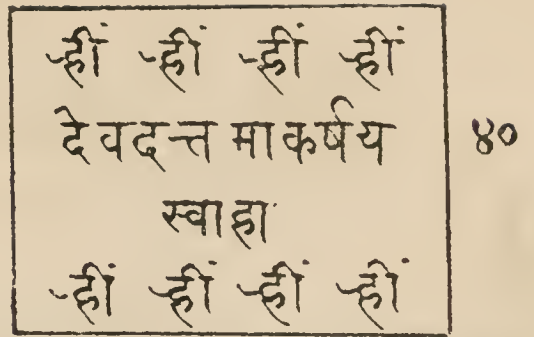 ह्रीं ह्रीं ह्रीं ह्रीं
देवदत्त माकर्षय
४०
स्वाहा
ह्रीं ह्रीं ह्रीं ह्रीं